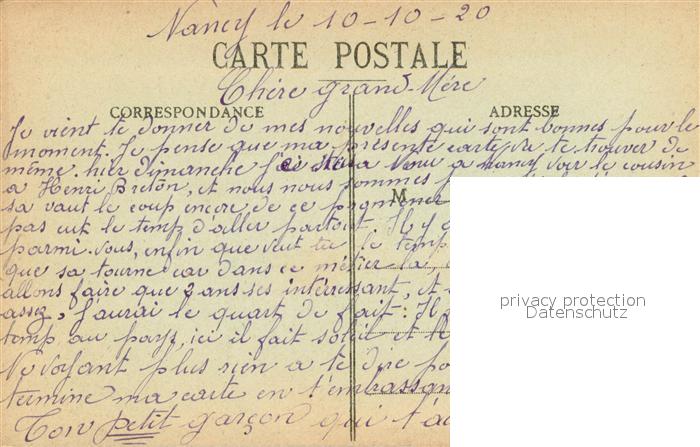 Nancy le 10-10-20
CARTE POSTALE
Chère grand-Mère
CORRESPONDANCE ADRESSE
Je vient te donner de mes nouvelles qui sont bonnes pour le
moment. Je pense que ma présente carte va te trouver de
même. hier dimanche à nancy voir le cousin
a Henri Breton, et nous nous sommes
sa vaut le coup encore de ce promener M
pas eut le temp d'aller partout. Il y
parmi vous, enfin que veut tu le temp
que sa tourne car dans ce métier la,
allons faire que 2 ans ses intérressant, et
assez, j'aurai le quart de fait: Il
temp au pays, ici il fait soleil et
privacy protection
Datenschutz
Ne voyant plus rien a te dire
termine ma carte en t'embrassant
Ton petit garçon qui